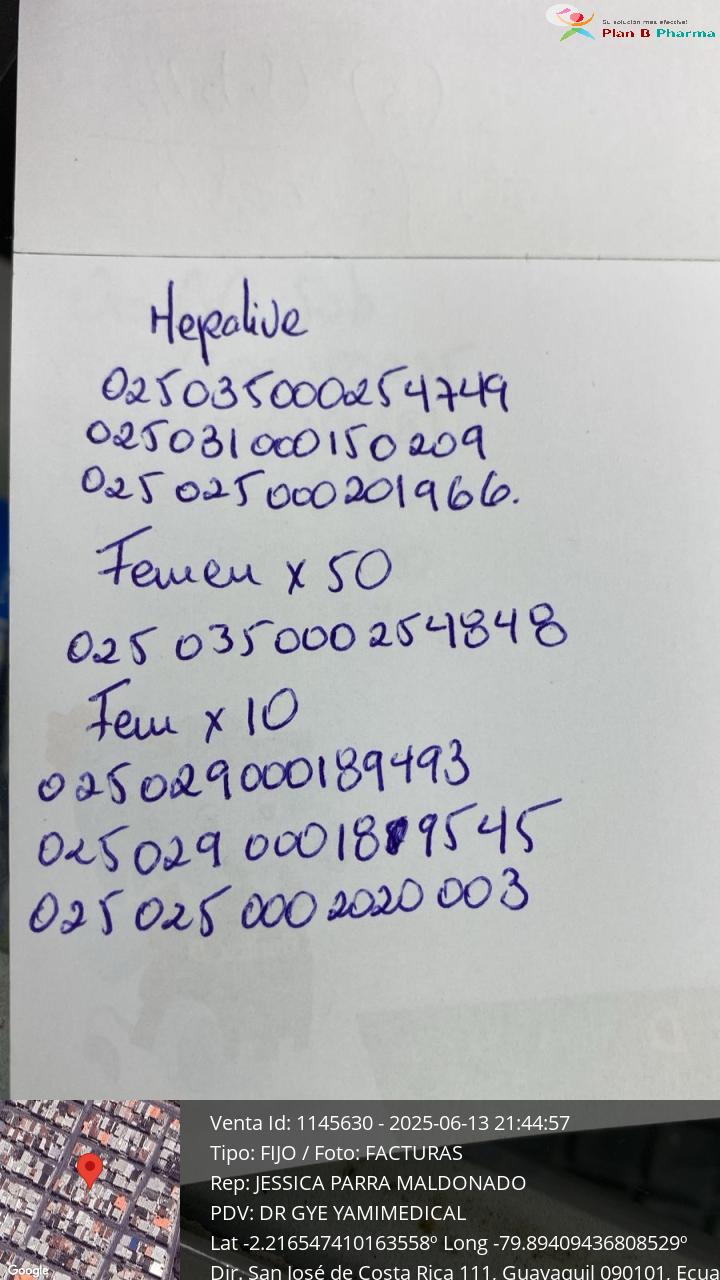 Su solución más efectiva!
Plan B Pharma
Hepalive
025035000254749
025031000150209
025025000201966.
Femen x 50
025 035000 254848
Fem x 10
025029000189493
025029 000189545
025025 000 2020 003
Venta Id: 1145630 - 2025-06-13 21:44:57
Tipo: FIJO / Foto: FACTURAS
Rep: JESSICA PARRA MALDONADO
PDV: DR GYE YAMIMEDICAL
Lat -2.216547410163558º Long -79.89409436808529º
Dir. San José de Costa Rica 111, Guayaquil 090101, Ecua
Google